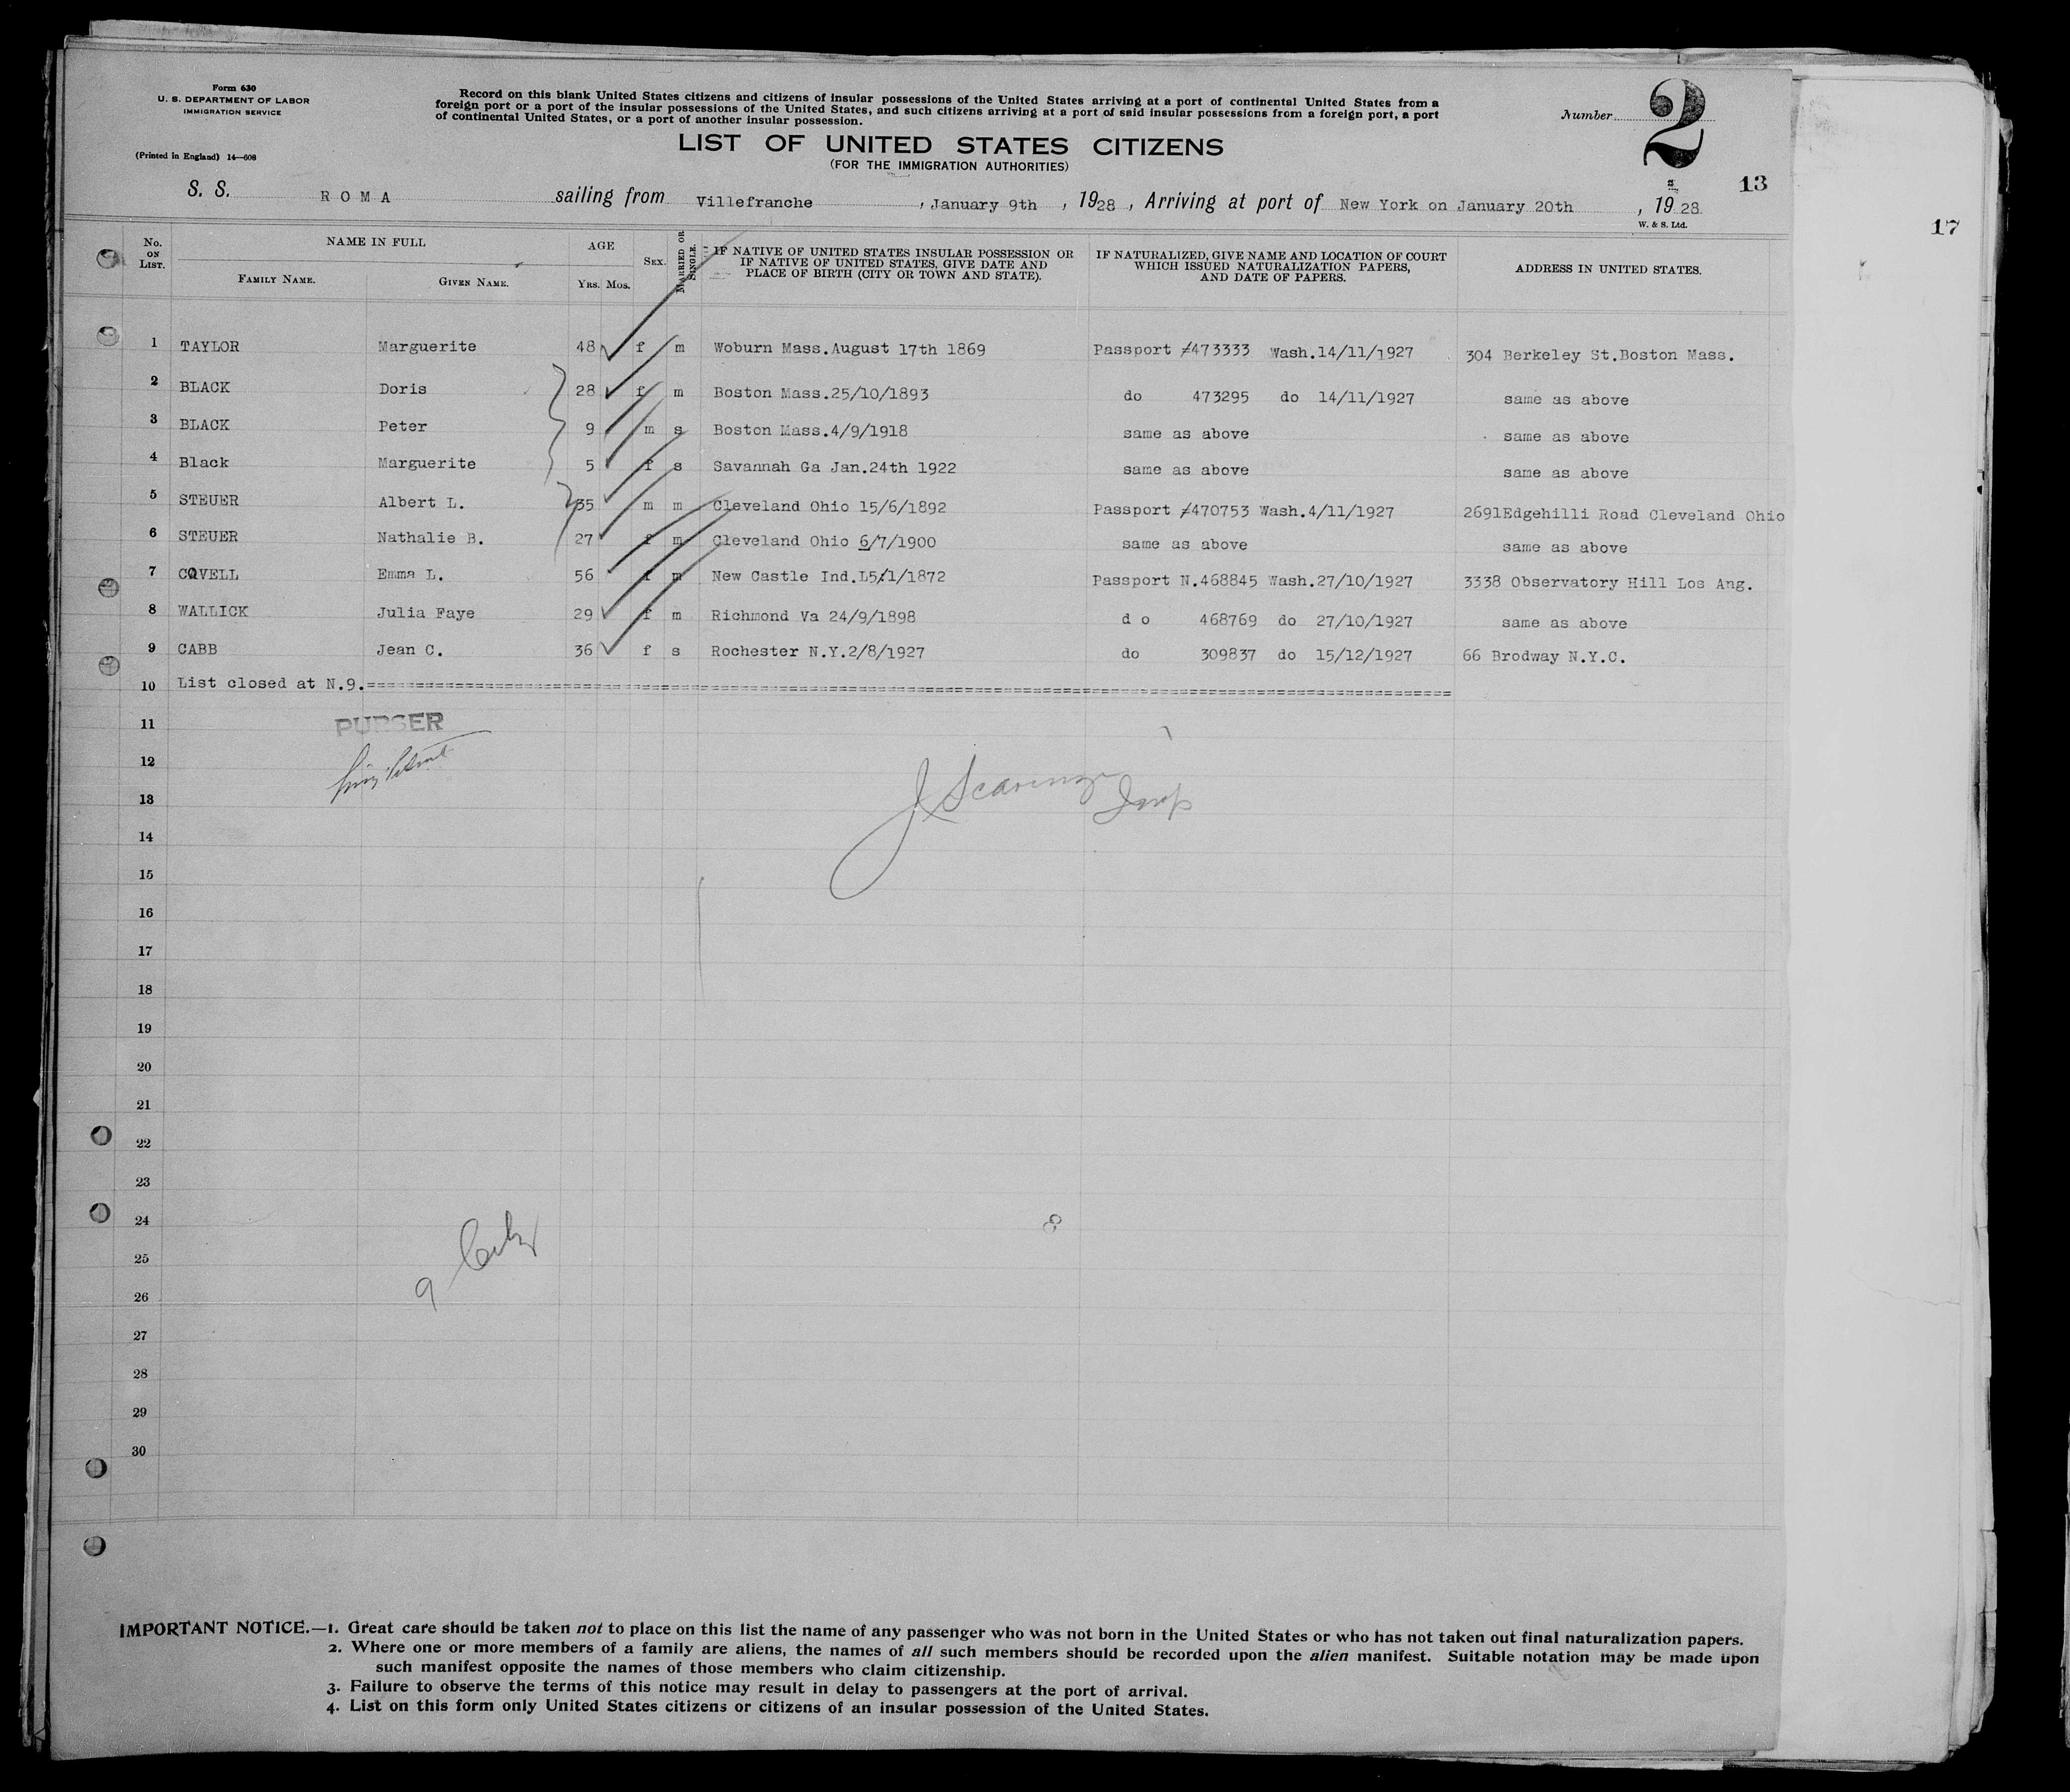 Form 630
U. S. DEPARTMENT OF LABOR
IMMIGRATION SERVICE
(Printed in England) 14—608
Record on this blank United States citizens and citizens of insular possessions of the United States arriving at a port of continental United States from a
foreign port or a port of the insular possessions of the United States, and such citizens arriving at a port of said insular possessions from a foreign port, a port
of continental United States, or a port of another insular possession.
LIST OF UNITED STATES CITIZENS
(FOR THE IMMIGRATION AUTHORITIES)
Number 2
13
17
S. S. ROMA sailing from Villefranche, January 9th, 1928, Arriving at port of New York on January 20th, 1928
W. & S. Ltd.
No. ON LIST. NAME IN FULL AGE SEX. MARRIED OR SINGLE. IF NATIVE OF UNITED STATES INSULAR POSSESSION OR IF NATIVE OF UNITED STATES, GIVE DATE AND PLACE OF BIRTH (CITY OR TOWN AND STATE). IF NATURALIZED, GIVE NAME AND LOCATION OF COURT WHICH ISSUED NATURALIZATION PAPERS, AND DATE OF PAPERS. ADDRESS IN UNITED STATES.
FAMILY NAME. GIVEN NAME. YRS. MOS.
1 TAYLOR Marguerite 48 f m Woburn Mass.August 17th 1869 Passport ≠473333 Wash.14/11/1927 304 Berkeley St.Boston Mass.
2 BLACK Doris 28 f m Boston Mass.25/10/1893 do 473295 do 14/11/1927 same as above
3 BLACK Peter 9 m s Boston Mass.4/9/1918 same as above same as above
4 Black Marguerite 5 f s Savannah Ga Jan.24th 1922 same as above same as above
5 STEUER Albert L. 35 m m Cleveland Ohio 15/6/1892 Passport ≠470753 Wash.4/11/1927 2691Edgehilli Road Cleveland Ohio
6 STEUER Nathalie B. 27 f m Cleveland Ohio 6/7/1900 same as above same as above
7 COVELL Emma L. 56 f m New Castle Ind.15/1/1872 Passport N.468845 Wash.27/10/1927 3338 Observatory Hill Los Ang.
8 WALLICK Julia Faye 29 f m Richmond Va 24/9/1898 d o 468769 do 27/10/1927 same as above
9 CABB Jean C. 36 f s Rochester N.Y.2/8/1927 do 309837 do 15/12/1927 66 Brodway N.Y.C.
10 List closed at N.9.
11 PURSER
12
13 J Scarinzi Insp
14
15
16
17
18
19
20
21
22
23
24 8
25
26 9
27
28
29
30
IMPORTANT NOTICE.—1. Great care should be taken not to place on this list the name of any passenger who was not born in the United States or who has not taken out final naturalization papers.
2. Where one or more members of a family are aliens, the names of all such members should be recorded upon the alien manifest. Suitable notation may be made upon
such manifest opposite the names of those members who claim citizenship.
3. Failure to observe the terms of this notice may result in delay to passengers at the port of arrival.
4. List on this form only United States citizens or citizens of an insular possession of the United States.